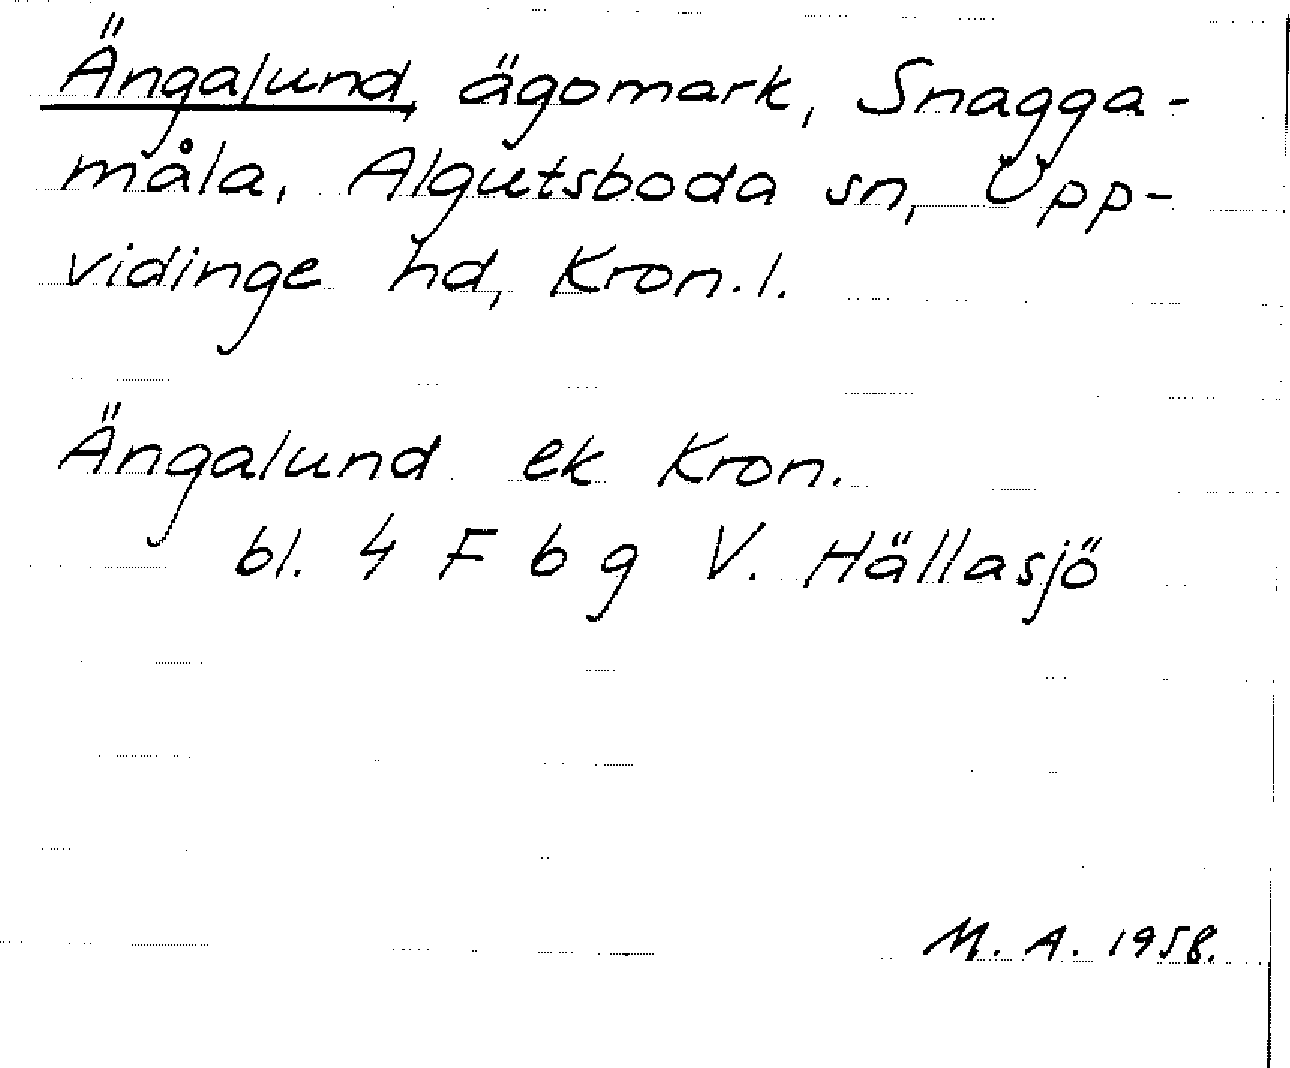 Ängalund, ägomark, Snagga-
måla, Algutsboda sn, Upp-
vidinge hd, Kron. l.
Ängalund ek Kron.
bl. 4 F b g V. Hällasjö
M. A. 1958.